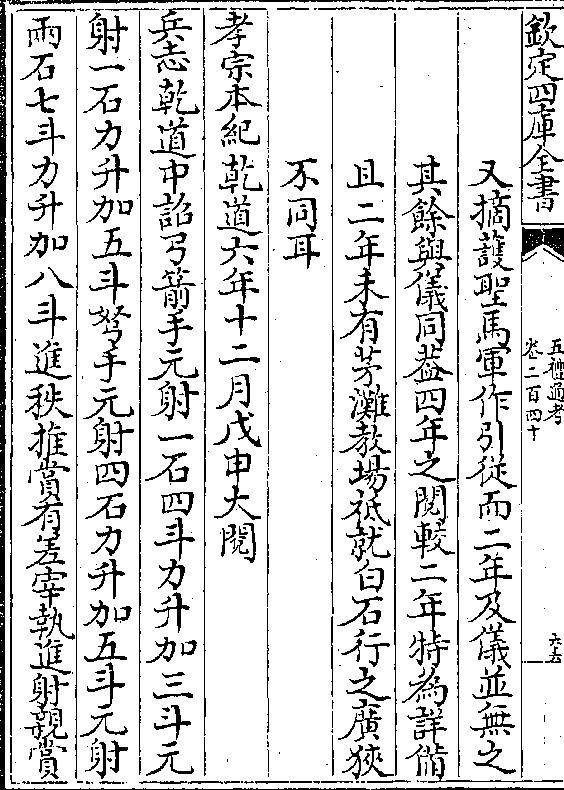 欽定四庫全書
五禮通考
卷二百四十
六去
又摘護聖馬軍作引從而二年及儀並無之
其餘與儀同葢四年之閱較二年特為詳備
且二年未有茅灘教場祗就白石行之廣狹
不同耳
孝宗本紀乾道六年十二月戊申大閱
兵志乾道中詔弓箭手元射一石四斗力升加三斗元
射一石力升加五斗弩手元射四石力升加五斗元射
兩石七斗力升加八斗進秩推賞有差宰執進射親賞